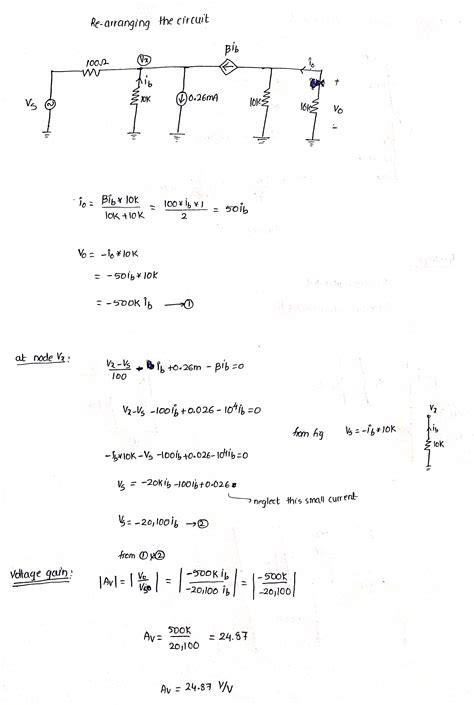 Re-arranging the circuit
βib
100Ω
Vx
io
ib
+
Vs
10K
0.26mA
10K
10K
Vo
-
io = βib * 10K / 10K + 10K = 100 * ib * 1 / 2 = 50ib
Vo = -io * 10K
= -50ib * 10K
= -500K ib → ①
at node Vx:
Vx-Vs / 100 - ib + 0.26m - βib = 0
Vx-Vs - 100ib + 0.026 - 10⁴ib = 0
V2
from fig Vs = -ib * 10K
ib
10K
-ib*10K - Vs - 100ib + 0.026 - 10⁴ib = 0
Vs = -20Kib - 100ib + 0.026
→ neglect this small current
Vs = -20,100 ib → ②
from ① & ②
Voltage gain:
|Av| = |Vo / Vso| = |-500K ib / -20,100 ib| = |-500K / -20,100|
Av = 500K / 20,100 = 24.87
Av = 24.87 V/V